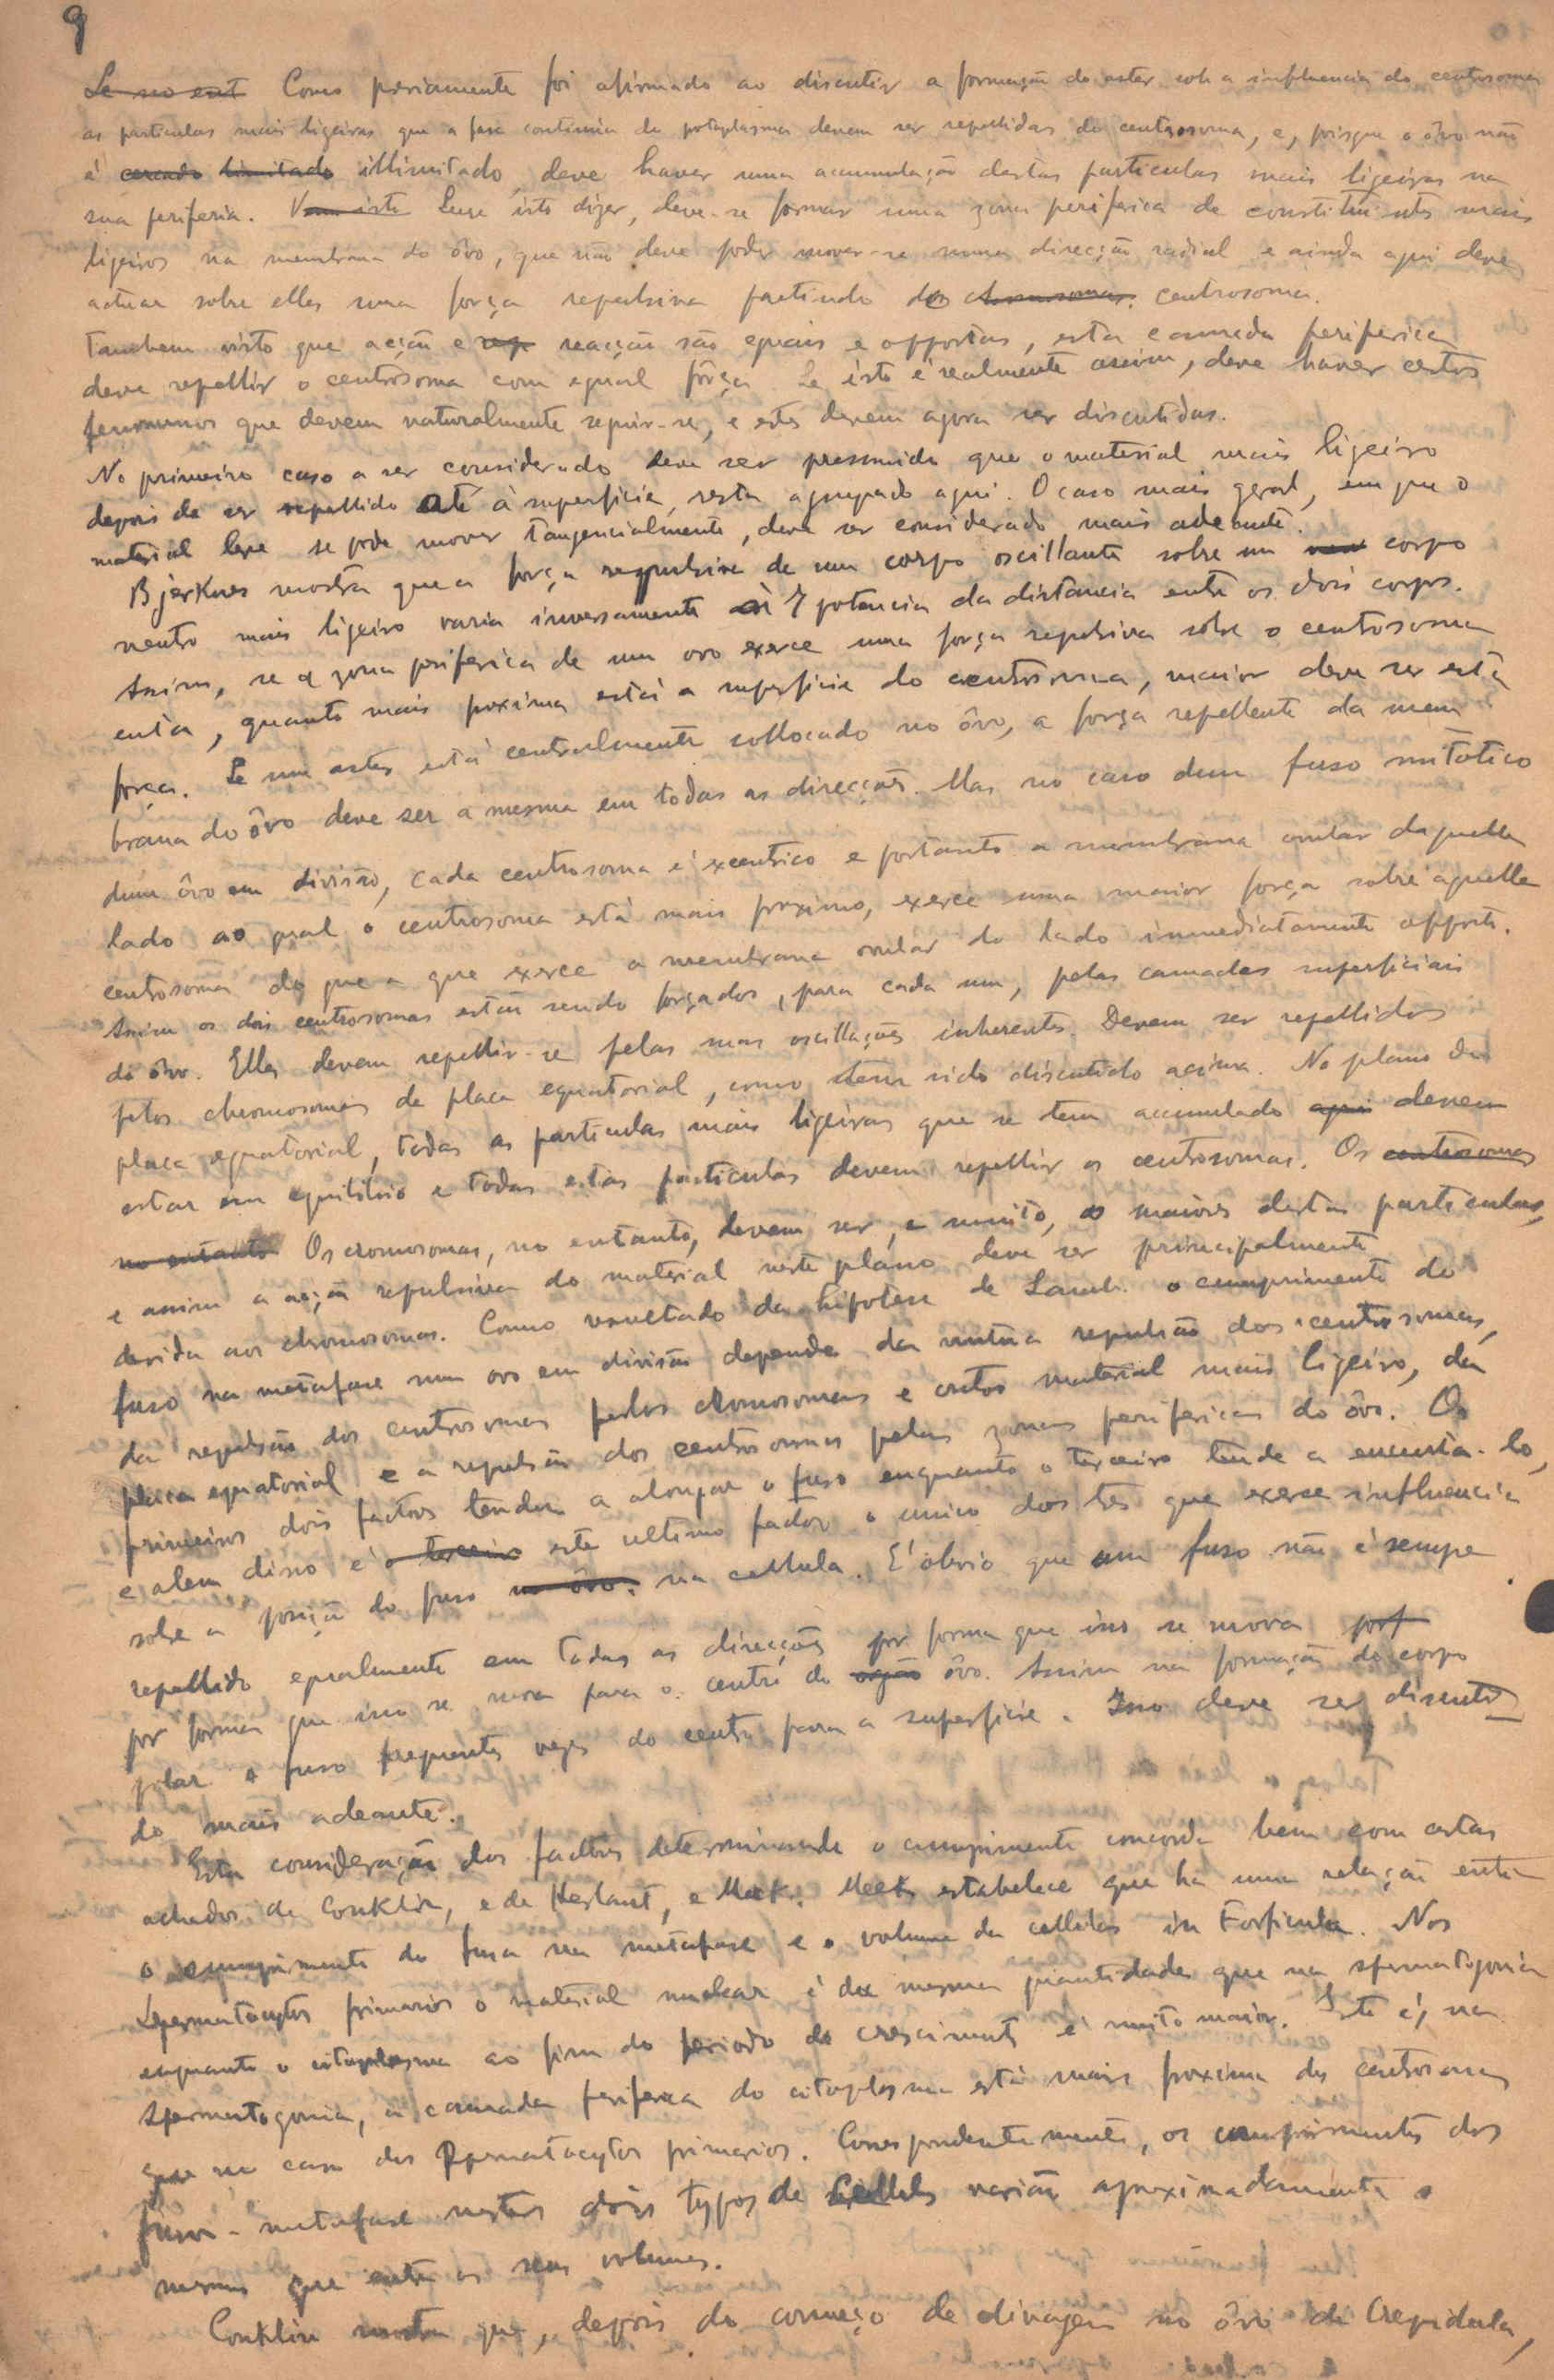 9
Se no ent Como pèviamente foi afirmado ao discutir a formação do aster sob a influencia do centrosoma
as particulas mais ligeiras que a fase continua do protoplasma devem ser repellidas do centrosoma, e, poisque o ôvo não
é cercado limitado illimitado, deve haver uma accumulação destas particulas mais ligeiras na
sua periferia. Vem isto Quer isto dizer, deve-se formar uma zona periferica de constituintes mais
ligeiros na membrana do ôvo, que não deve poder mover-se numa direcção radial e ainda aqui deve
actuar sobre elles uma força repulsiva partindo do chromosoma. centrosoma.
Tambem visto que acção e rep reacção são eguais e oppostas, esta camada periferica
deve repellir o centrosoma com egual fôrça Se isto é realmente assim, deve haver certos
fenomenos que devem naturalmente seguir-se, e estes devem agora ser discutidos.
No primeiro caso a ser considerado deve ser presumido que o material mais ligeiro
depois de ser repellido até à superficie, resta agrupado aqui. O caso mais geral, em que o
material leve se pode mover tangencialmente, deve ser considerado mais adeante.
Bjerknes mostra que a força repulsiva de um corpo oscillante sobre um corpo
neutro mais ligeiro varia inversamente à 7 potencia da distancia entre os dois corpos.
Assim, se a zona periferica de um ovo exerce uma força repulsiva sobre o centrosoma
então, quanto mais proxima está a superficie do centrosoma, maior deve ser esta
força. Se um aster está centralmente collocado no ôvo, a força repellente da mem
brana do ôvo deve ser a mesma em todas as direcções. Mas no caso dum fuso mitotico
dum ôvo em divisão, cada centrosoma é excentrico e portanto a membrana ovular daquelle
lado ao qual o centrosoma está mais proximo, exerce uma maior força sobre aquelle
centrosoma do que a que exerce a membrana ovular do lado immediatamente opposto.
Assim os dois centrosomas estão sendo forçados, para cada um, pelas camadas superficiais
do ôvo. Elles devem repellir-se pelas suas oscillações inherentes. Devem ser repellidos
pelos chromosomas da placa equatorial, como tem sido discutido acima. No plano da
placa equatorial, todas as particulas mais ligeiras que se tem accumulado aqui devem
estar em equilibrio e todas estas particulas devem repellir os centrosomas. Os centrosomas
no entanto Os cromosomas, no entanto, devem ser, e muito, as maiores destas particulas,
e assim a acção repulsiva do material neste plano deve ser principalmente
devida aos chromosomas. Como resultado da hipotese de Lamb. o cumprimento do
fuso na metafase num ovo em divisão depende da mutua repulsão dos centrosomas,
da repulsão dos centrosomas pelos chromosomas e outro material mais ligeiro, da
placa equatorial e a repulsão dos centrosomas pelas zonas perifericas do ôvo. Os
primeiros dois factores tendem a alongar o fuso enquanto o terceiro tende a encurta-lo,
e alem disso é o terceiro este ultimo factor o unico dos tres que exerce influencia
sobre a posição do fuso no ôvo. na cellula. É óbvio que um fuso não é sempre
repellido egualmente em todas as direcções por forma que isso se mova porf
por forma que isso se mova para o centro do orgão ôvo. Assim na formação do corpo
polar o fuso frequentes vezes do centro para a superficie. Isso deve ser discuti
do mais adeante.
Esta consideração dos factores determinando o cumprimento concorda bem com certas
achados de Conklin, e de Herlant, e Meek. Meek estabelece que há uma relação entre
o cumprimento do fuso na metafase e o volume da cellulas in Forficula. Nos
Spermatocytos primarios o material nuclear é da mesma quantidade que na spermatogonia
enquanto o citoplasma ao fim do periodo de crescimento é muito maior. Isto é, na
Spermatogonia, a camada periferica do citoplasma está mais proxima dos centrosomas
que no caso dos Spermatocytos primarios. Correspondentemente, os cumprimentos dos
fusos-metafase nestes dois typos de cellulas varião aproximadamente o
mesmo que entre os seus volumes.
Conklin mostra que, depois do começo de clivagem no ôvo de Crepidula,